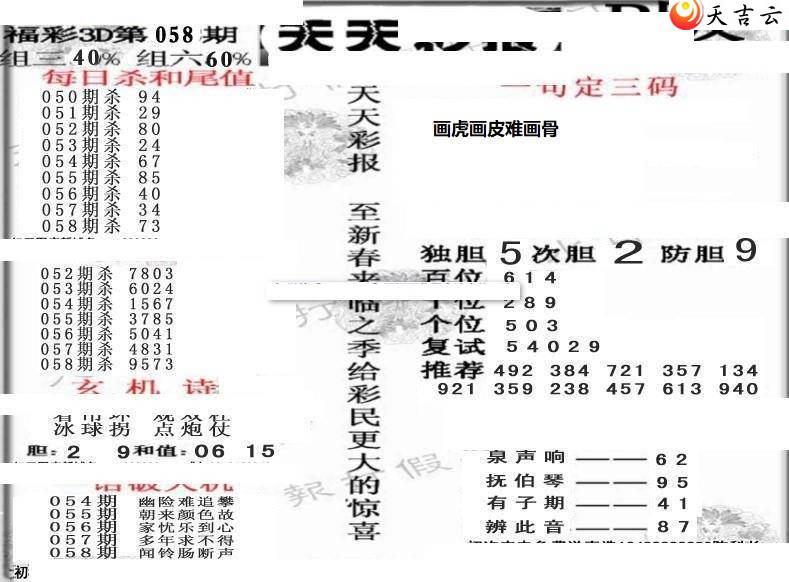 天吉云
福彩3D第058期
天天彩报
组三40% 组六60%
每日杀和尾值
050期杀 94
051期杀 29
052期杀 80
053期杀 24
054期杀 67
055期杀 85
056期杀 40
057期杀 34
058期杀 73
052期杀 7803
053期杀 6024
054期杀 1567
055期杀 3785
056期杀 5041
057期杀 4831
058期杀 9573
玄机诗
冰球拐 点炮仗
胆:2 9和值:06 15
054期 幽险难追攀
055期 朝来颜色故
056期 家忧乐到心
057期 多年求不得
058期 闻铃肠断声
初
天天彩报 至新春来临之季给彩民更大的惊喜
一句定三码
画虎画皮难画骨
独胆5次胆2防胆9
百位 614
十位 289
个位 503
复试 54029
推荐 492 384 721 357 134
921 359 238 457 613 940
泉声响——62
抚伯琴——95
有子期——41
辨此音——87